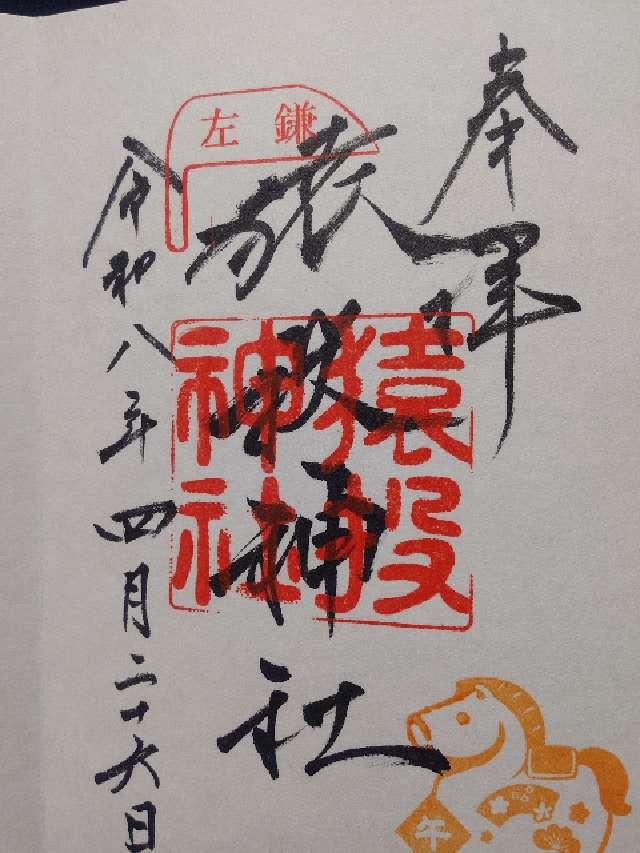 奉拝
左鎌
猿投神社
猿投神社
令和八年四月二十六日
午